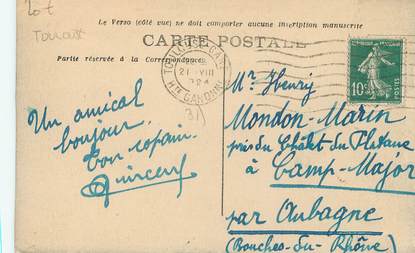 20t
Le Verso (côté vue) ne doit comporter aucune inscription manuscrite
CARTE POSTALE
Partie réservée à la Correspondance.
TOULOUSE GARE
21 - VIII
Hte GARONNE
10c
Un amical
bonjour.
Ton copain.
Mr Henry
Mondon-Marin
près du Châlet du Platane
à Camp-Major
par Aubagne
(Bouches-du-Rhône)